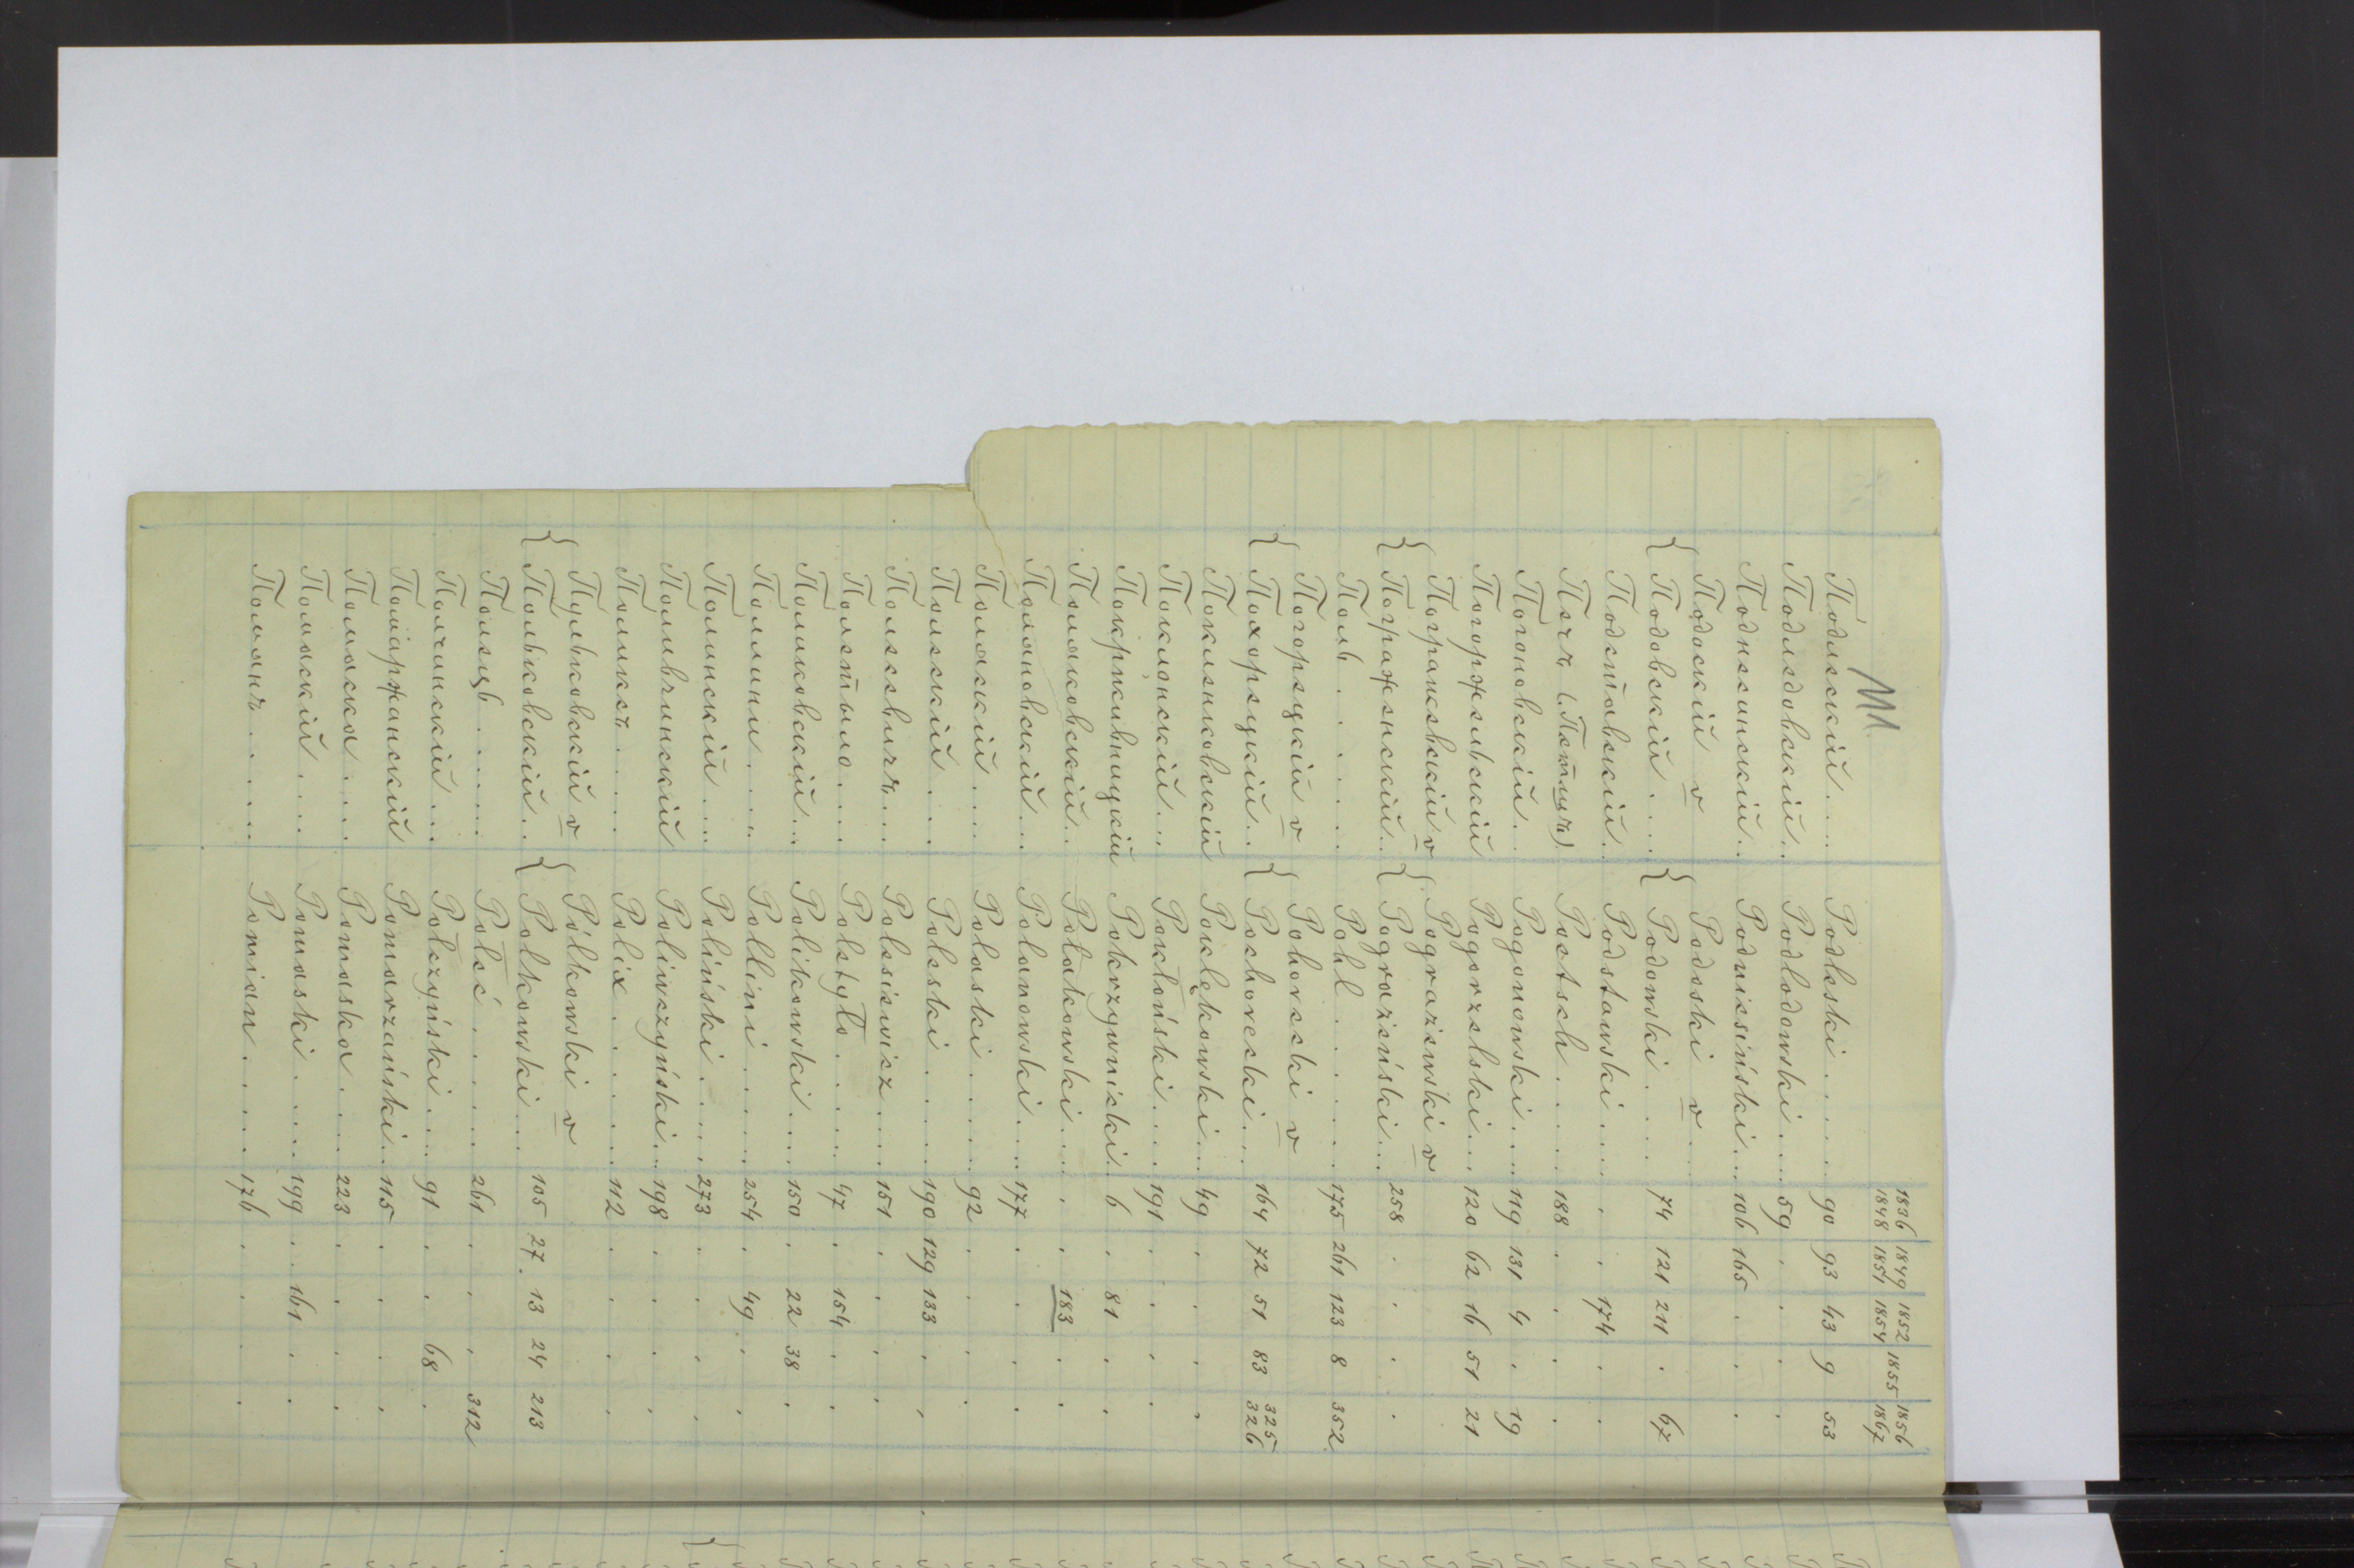 111
1836 1849 1852 1855 1856
1848 1851 1854 1867
Подлескій.... Podleski...... 90 93 43 9 53
Подлодовскій.. Podlodowski.... 59 . . . .
Поднесинскій.. Podniesiński... 106 165 . . .
{ Подоскій v Podoski v
Подовскій.... { Podowski.... 74 121 211 . 67
Подставскій.. Podstawski.... . . 174 . .
Печ (Петшъ) Poetsch..... 188 . . . .
Погоновскій... Pogonowski... 119 131 4 . 19
Погоржельскій Pogorzelski... 120 62 16 51 21
{ Погражевскій v { Pograżewski v
Пограженскій.. Pograżeński... 258 . . . .
Поль...... Pohl....... 175 261 123 8 352
{ Погорецкій v { Pohorecki v
Похорецкій.. Pochorecki... 164 72 51 83 325 326
Покленковскій Poklękowski... 49 . . . .
Поклонскій... Pokłoński.... 191 . . . .
Покрживницкій Pokrzywnicki.. 6 . 81 . .
Полаковскій.. Połakowski.... . . 183 . .
Полановскій... Polanowski.... 177 . . . .
Поласкій.... Polaski...... 92 . . . .
Полескій.... Poleski..... 190 129 133 . .
Полесевичъ... Polesiewicz.... 151 . . . .
Полетыло.... Poletyło..... 47 . 154 . .
Поликовскій... Polikowski.... 150 . 22 38 .
Поллини..... Pollini...... 254 . 49 . .
Полинскій.... Poliński..... 273 . . . .
Поливчинскій Poliwczyński... 198 . . . .
Поликсъ..... Polix....... 112 . . . .
{ Пульковскій v { Pólkowski v
Польковскій.. Polkowski... 105 27 13 24 213
Полець...... Połeć...... 261 . . . 312
Полчинскій... Połczyński... 91 . . 68 .
Помаржанскій Pomarzański.. 115 . . . .
Помаска.... Pomaska.... 223 . . . .
Помаскій.... Pomaski.... 199 . 161 . .
Помянъ..... Pomian..... 176 . . . .